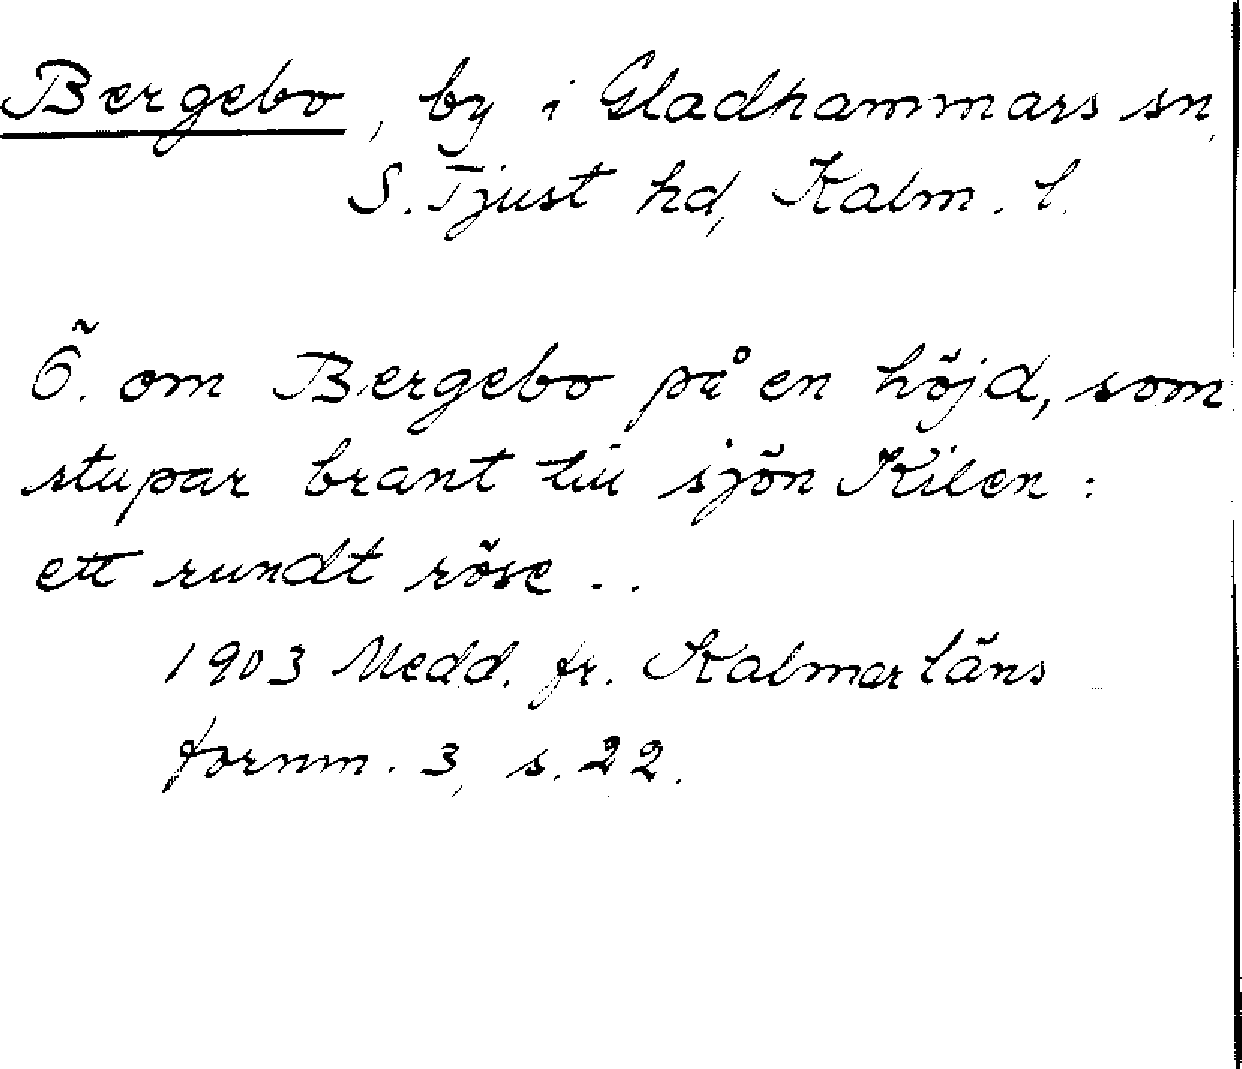 Bergebo, by i Gladhammars sn,
S. Tjust hd, Kalm. l.
Ö. om Bergebo på en höjd, som
stupar brant till sjön Kilen:
ett rundt röse..
1903 Medd. fr. Kalmar läns
fornm. 3, s. 22.